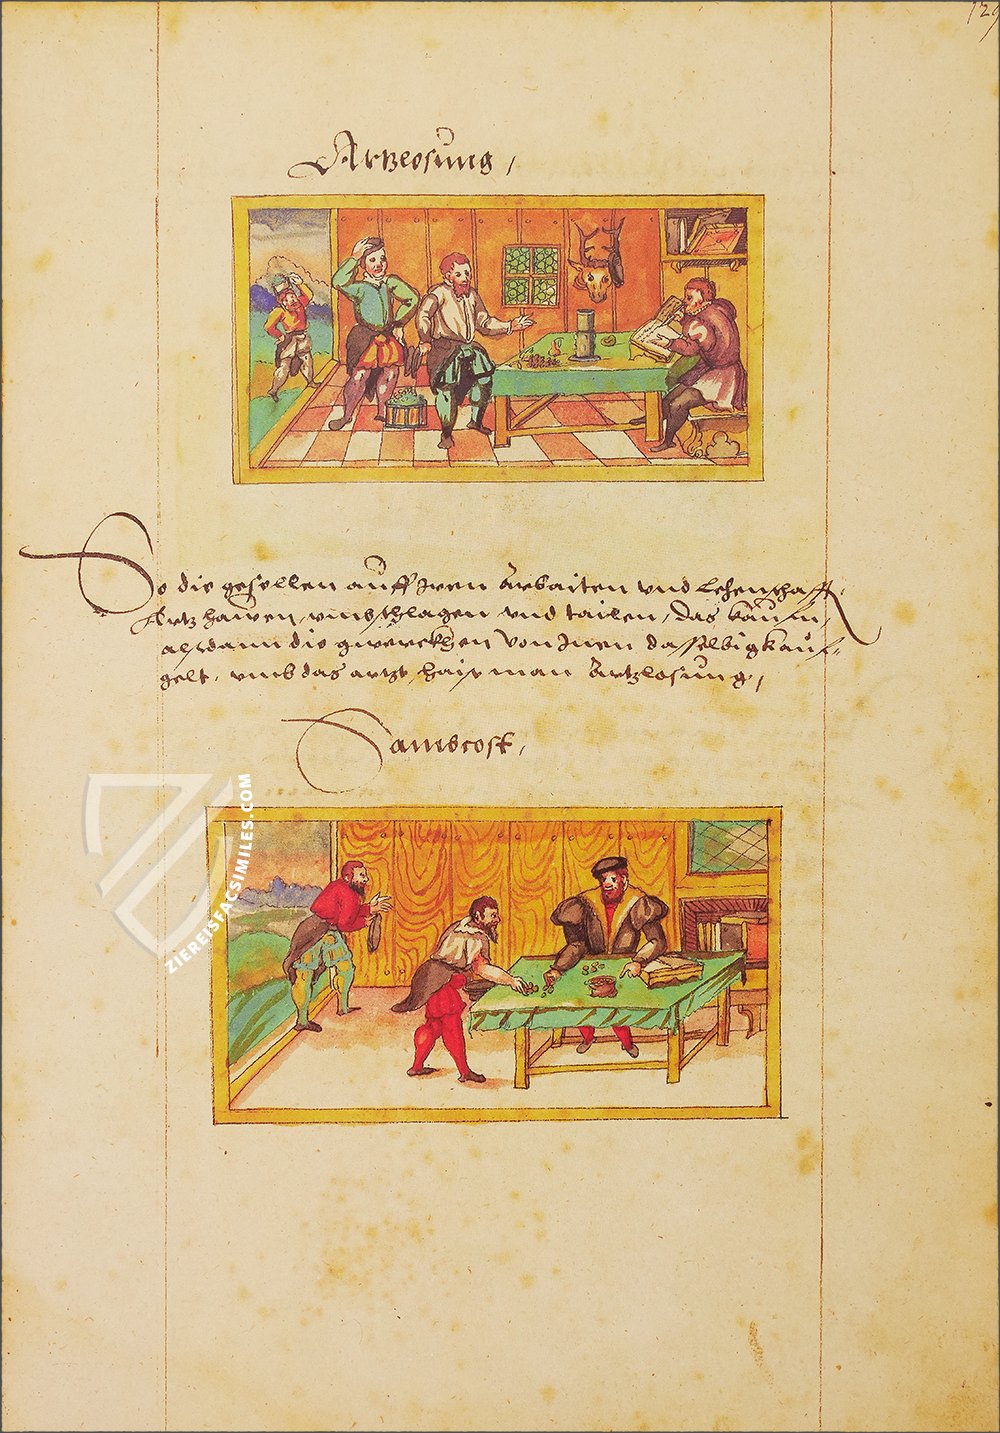 129
Artzlosung,
So die gesellen auff Iren Arbaiten vnd Lehenschafft,
Artz hawen, vmbschlagen vnd tailen, das kaufn,
alsdann die gwerckhen von Inen dasselbig kauf-
gelt, vmb das artzt, haist man Artzlosung,
Sambcost,
ZIEREISFACSIMILES.COM